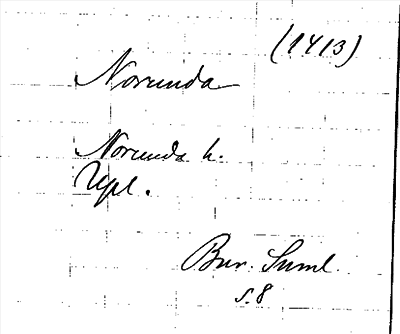 (1413)
Norunda
Norunda h.
Upl.
Bur. Suml.
s. 8